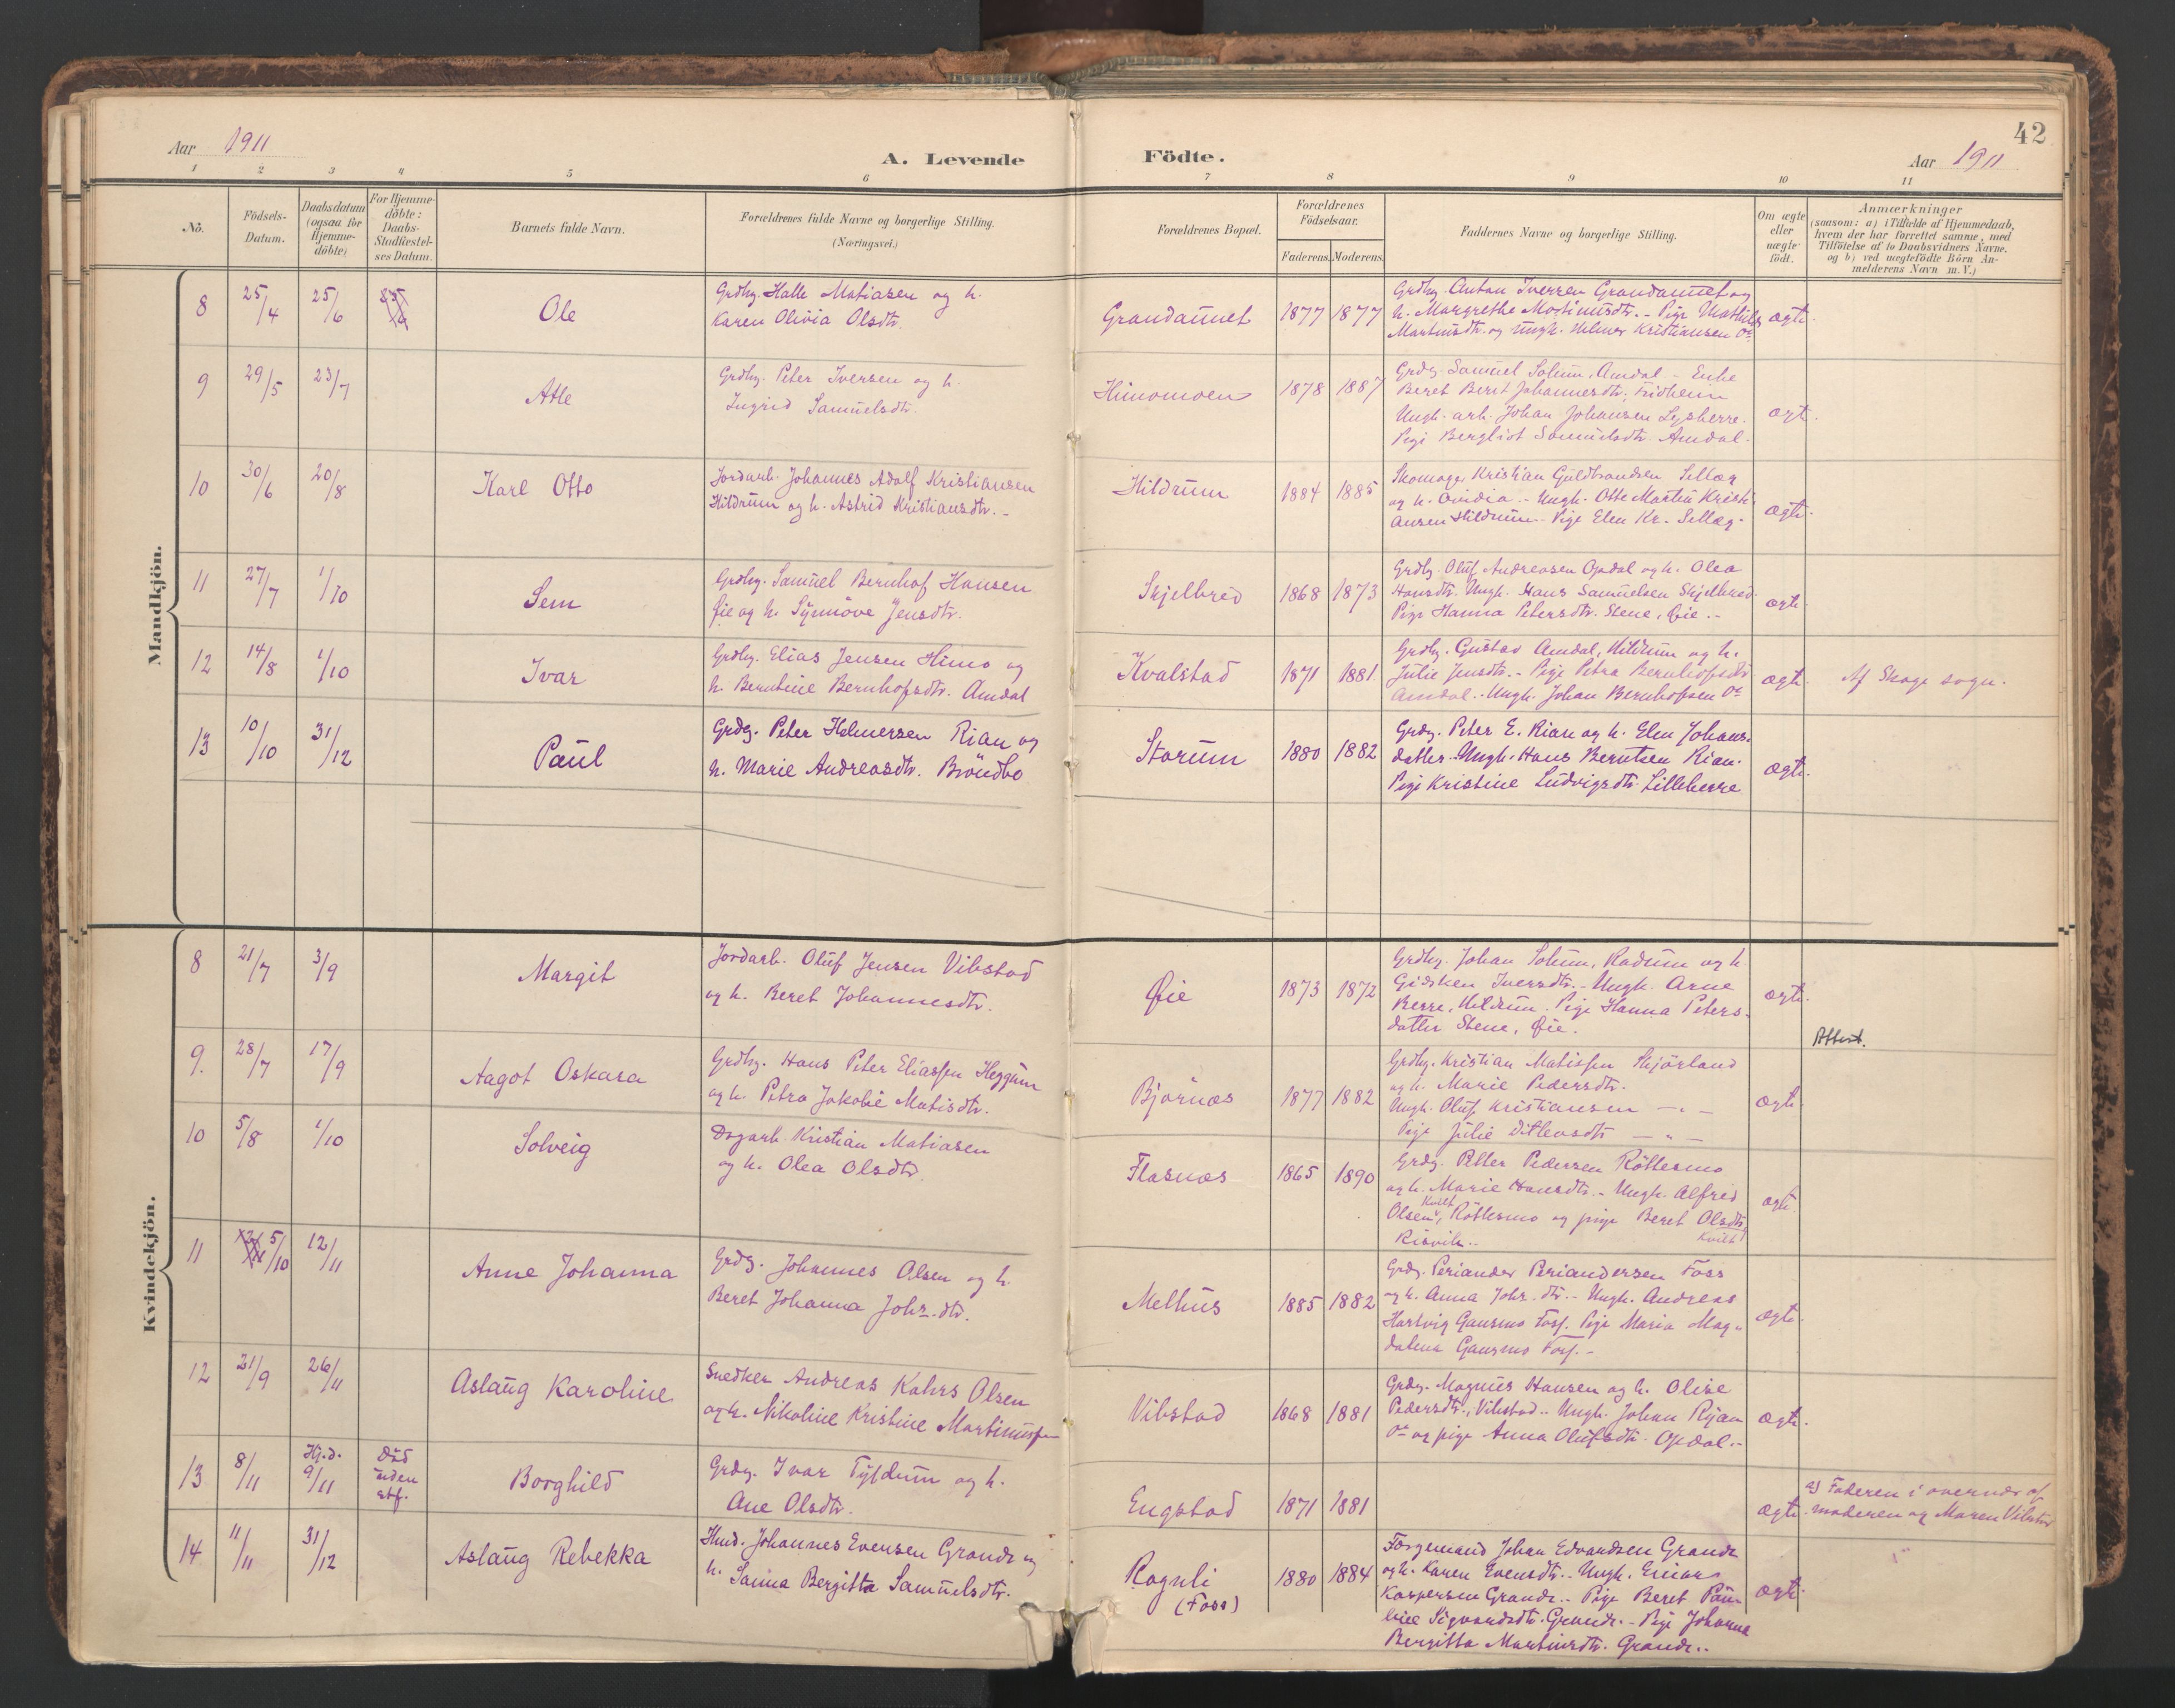 42
Aar 1911
A. Levende
Födte.
Aar 1911
1 2 3 4 5 6 7 8 9 10 11
No.
Födsels-
Datum.
Daabsdatum
(ogsaa for
Hjemme-
döbte)
For Hjemme-
döbte:
Daabs-
Stadfæstel-
ses Datum.
Barnets fulde Navn.
Forældrenes fulde Navne og borgerlige Stilling.
(Næringsvei.)
Forældrenes Bopæl.
Forældrenes
Födselsaar.
Faderens. Moderens.
Faddernes Navne og borgerlige Stilling.
Om ægte
eller
uægte
födt.
Anmærkninger
(saasom: a) i Tilfælde af Hjemmedaab,
hvem der har forrettet samme, med
Tilföielse af to Daabsvidners Navne.
og b) ved uægtefödte Börn An-
melderens Navn m. V.)
Mandkjön.
8 25/4 25/6 Ole
Grdbr. Halle Matiasen og h.
Karen Olivia Olsdtr.
Grandaunet 1877 1877
Grdbr. Anton Iversen Grandaunet og
h. Margrethe Martinusdtr. - Pige Mathilde
Martinsdtr. og Ungk. Helmer Kristiansen
ægte.
9 29/5 23/7 Atle
Grdbr. Peter Iversen og h.
Ingrid Samuelsdtr.
Himomoen 1878 1887
Grdbr. Samuel Solum, Amdal - Enke
Beret Beret Johannesdtr. Fridheim
Ungk. arb. Johan Johansen Lysberre.
Pige Bergliot Samuelsdtr. Amdal.
ægt.
10 30/6 20/8 Karl Otto
Jordarb. Johannes Adolf Kristiansen
Hildrum og h. Astrid Kristiansdtr. -
Hildrum 1884 1885
Skomager Kristian Guldbrandsen Sellæg
og h. Ovidia. - Ungk. Otto Martin Kristi-
ansen Hildrum. - Pige Elen Kr. Sellæg.
ægte.
11 27/7 1/10 Sem
Grdbr. Samuel Bernhof Hansen
Øie og h. Synnöve Jensdtr.
Skjelbred 1868 1873
Grdbr. Oluf Andreasen Opdal og h. Olea
Hansdtr. Ungk. Hans Samuelsen Skjelbred.
Pige Hanna Petersdtr. Stene, Øie. -
ægte.
12 14/8 1/10 Ivar
Grdbr. Elias Jensen Himo og
h. Berntine Bernhofsdtr. Amdal
Kvalstad 1871 1881
Grdbr. Gustav Amdal, Hildrum og h.
Julie Jensdtr. - Pige Petra Bernhofsdtr
Amdal. - Ungk. Johan Bernhofsen
ægte.
Af Skage sogn.
13 10/10 31/12 Paul
Grdbr. Peter Helmersen Rian og
h. Marie Andreasdtr. Bröndbo
Starum 1880 1882
Grdbr. Peter E. Rian og h. Elen Johans-
datter. Ungk. Hans Berntsen Rian.
Pige Kristine Ludvigsdtr. Lilleberre
ægte.
Kvindekjön.
8 21/7 3/9 Margit
Jordarb. Oluf Jensen Vibstad
og h. Beret Johannesdtr.
Øie 1873 1872
Grdbr. Johan Solum, Radum og h.
Gidsken Iversdtr. - Ungk. Arne
Berre, Hildrum. Pige Hanna Peters-
datter Stene, Øie.
ægte.
9. 28/7 17/9 Aagot Oskara
Grdbr. Hans Peter Eliassen Heggum
og h. Petra Jakobie Matisdtr.
Bjørnæs 1877 1882
Grdbr. Kristian Matissen Skjørland
og h. Marie Pedersdtr.
Ungk. Oluf Kristiansen — " —
Pige Julie Ditlevsdtr — " —
ægte.
Attest.
10 5/8 1/10 Solveig
Dagarb. Kristian Matiasen
og h. Olea Olsdtr.
Flasnæs 1865 1890
Grdbr. Petter Pedersen Röttesmo
og h. Marie Hansdtr. - Ungk. Alfred
Olsen Kvilt, Röttesmo og pige Beret Olsdtr.
Kvilt
Risvik..
ægte.
11 5/10 12/11 Anne Johanna
Grdbr. Johannes Olsen og h.
Beret Johanna Johs.dtr.
Melhus 1885 1882
Grdbr. Periander Periandersen Foss
og h. Anna Johs.dtr. - Ungk. Andreas
Hartvig Gansmo Foss. Pige Maria Mag-
dalena Gansmo Foss. -
ægte.
12 21/9 26/11 Aslaug Karoline
Snedker Andreas Kahrs Olsen
og h. Nikoline Kristine Martinussen
Vibstad 1868 1881
Grdbr. Magnus Hansen og h. Olise
Pedersdtr., Vibstad.. Ungk. Johan Rian
og pige Anna Olufsdtr. Opdal. -
ægte.
13 8/11 Hj.d. 9/11 Död uden stf. Borghild
Grdbr. Ivar Tyldum og h.
Ane Olsdtr.
Engstad 1871 1881
ægte.
a) Faderen i overvær af
moderen og Maren Vibstad
14 11/11 31/12 Aslaug Rebekka
Hmd. Johannes Evensen Grande og
h. Sanna Bergitta Samuelsdtr.
Ragnli
(Foss)
1880 1884
Færgemand Johan Edvardsen Grande
og h. Karen Evensdtr. - Ungk. Einar
Kaspersen Grande. - Pige Beret Pau-
line Sigvardsdtr. Grande. - Pige Johanna
Bergitta Martinsdtr. Grande..
ægte.